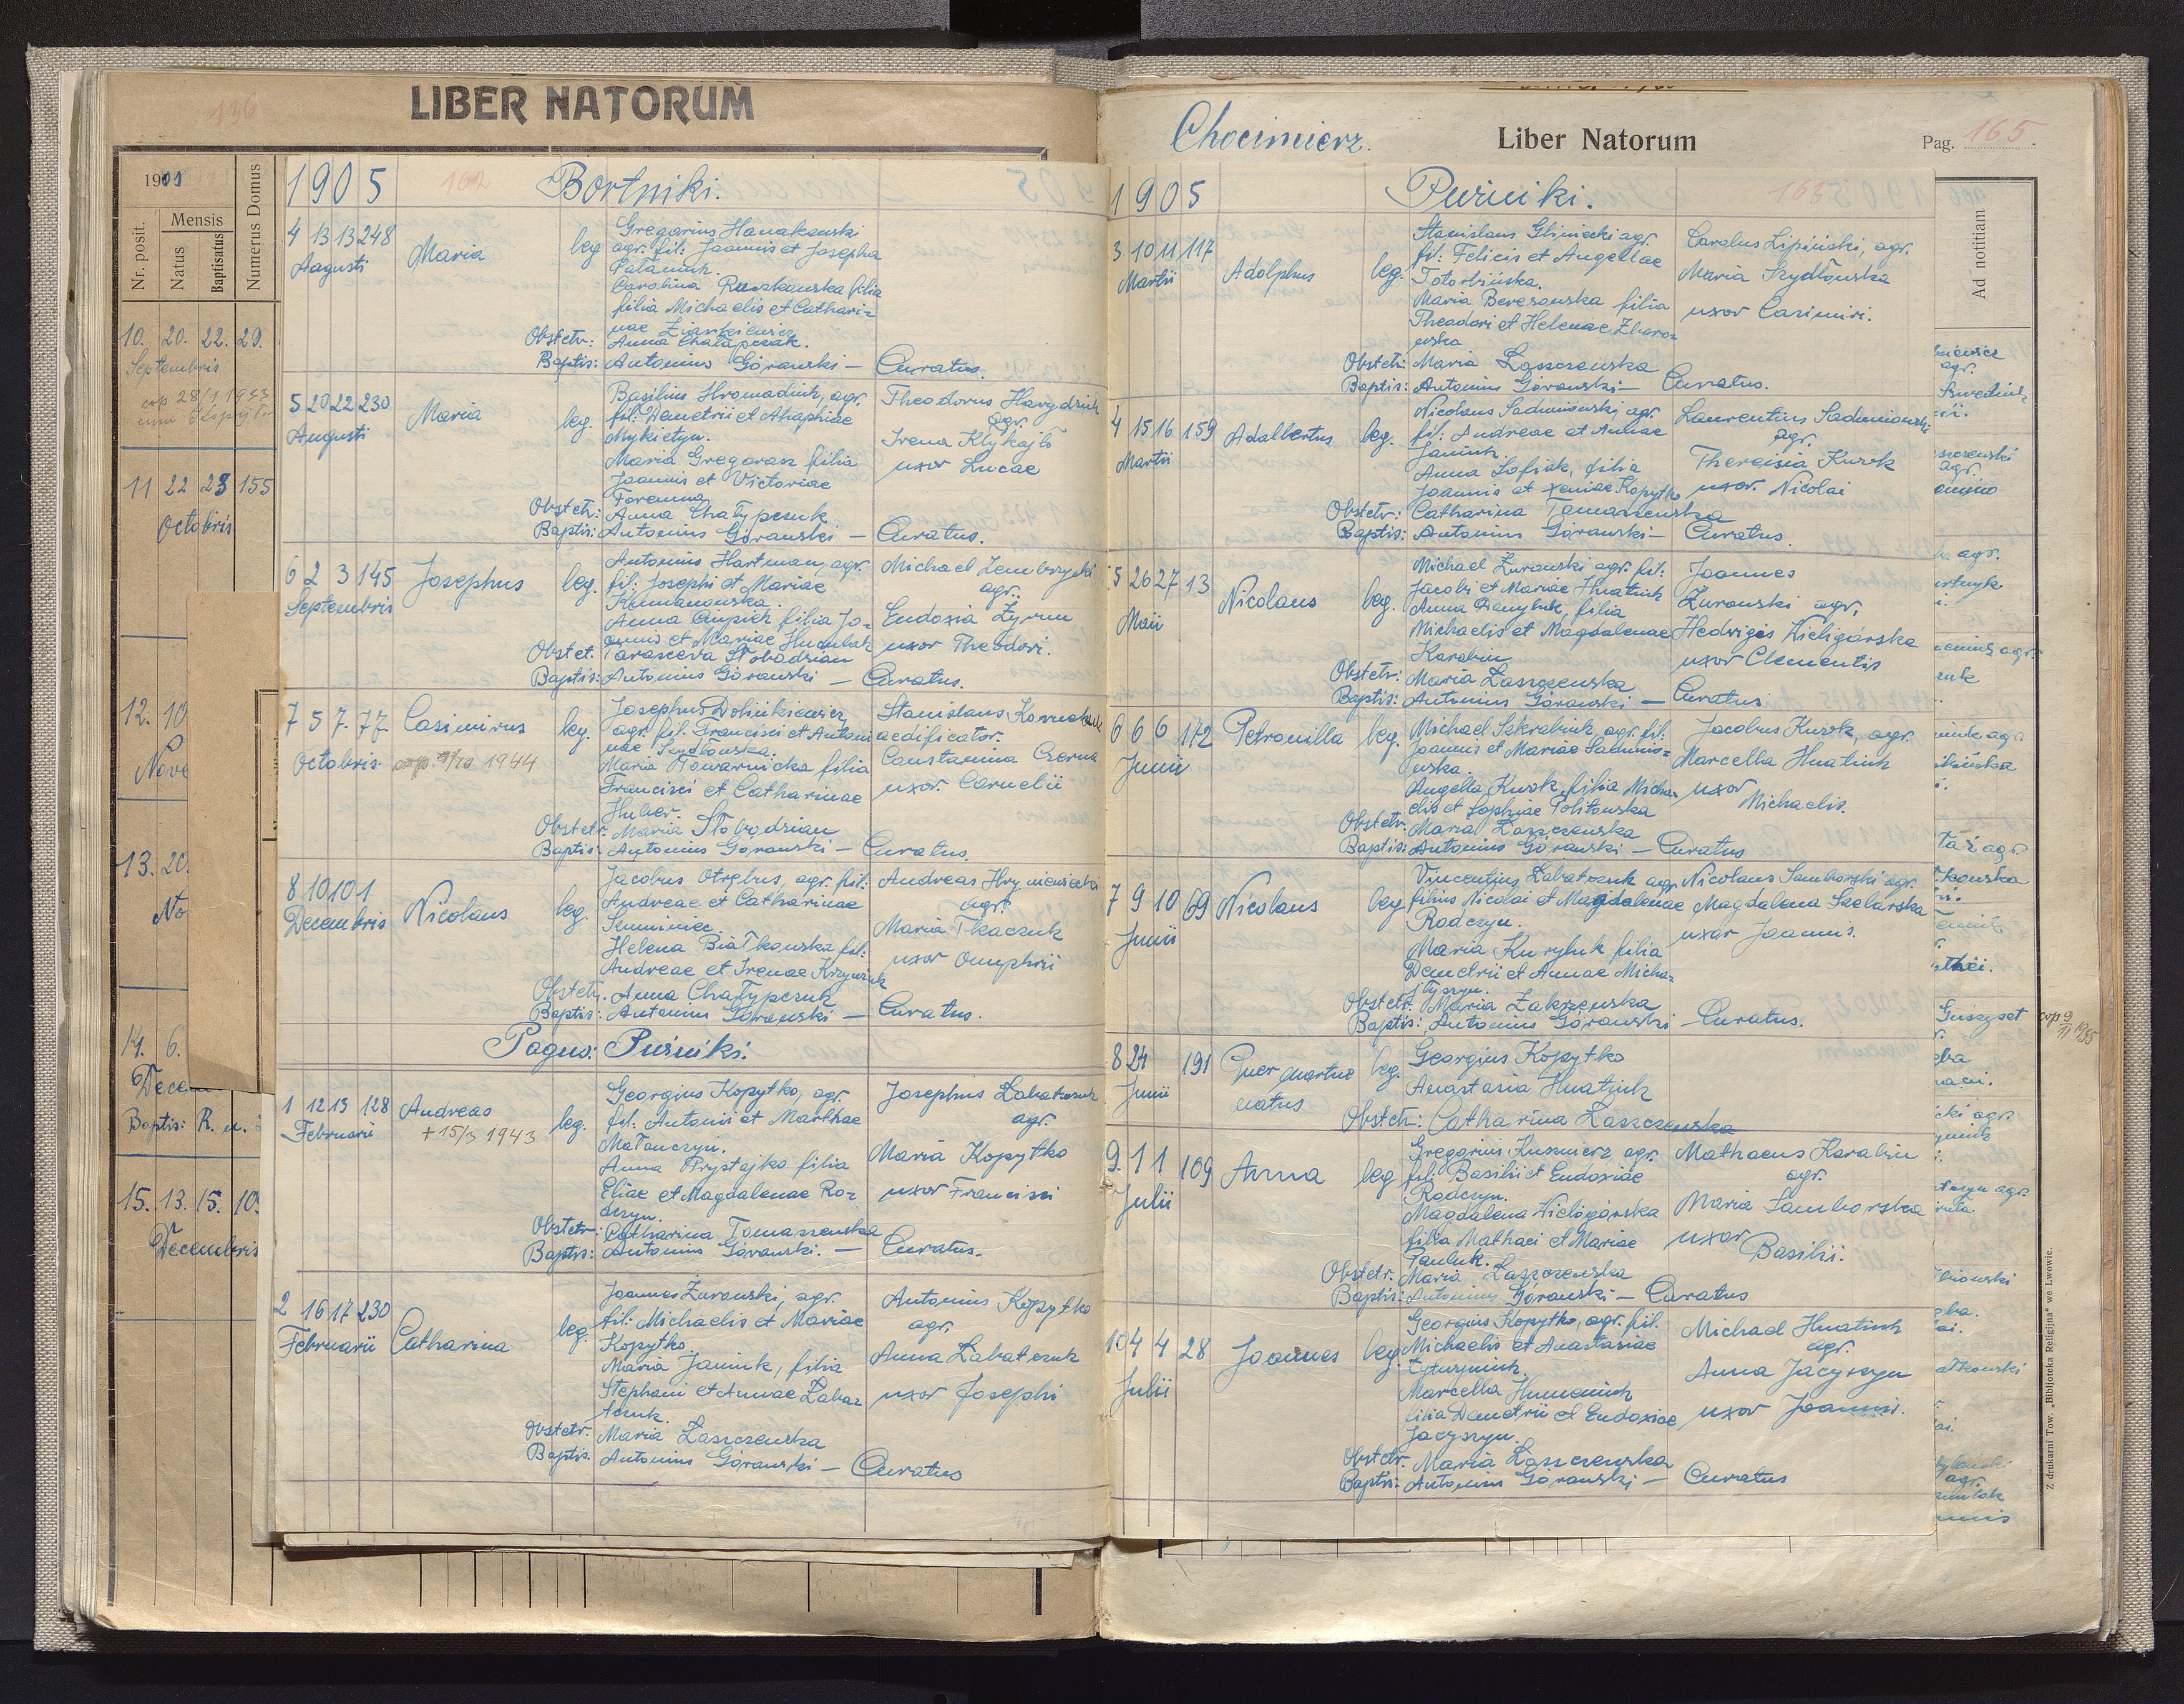 196
LIBER NATORUM
1901
Nr. posit.
Mensis
Natus
Baptisatus
Numerus Domus
10. 20. 22. 29.
Septembris
cop 28/1 1933
cum
11 22 23 155
Octobris
12. 10.
Nove
13. 20.
No
14. 6.
Dece
Baptis: R.
15. 13. 15. 10
Decembris
1905
162
Bortniki.
4 13 13 248
Augusti
Maria
leg
Gregorius Hanakowski
agr. fil: Joannis et Josepha
Palaniuk.
Carolina Ruszkowska filia
filia Michaelis et Cathari=
nae
Obstetr: Anna Chałapczak.
Baptis: Antonius Górawski — Curatus.
5 20 22 230
Augusti
Maria
leg.
Basilius Hromadiuk, agr.
fil: Demetrii et Ahaphiae
Mykietyn.
Maria Gregorasz filia
Joannis et Victoriae
Foremna
Theodorus Hawydziuk
agr.
Irena Kłykajło
uxor Lucae
Obstetr: Anna Chałypczuk
Baptis: Antonius Górawski — Curatus.
6 2 3 145
Septembris
Josephus
leg.
Antonius Hartman, agr.
fil: Josephi et Mariae
Kumanowska.
Anna Czupiek filia Jo=
annis et Mariae Humulak
Michael Zembrzycki
agr.
Eudoxia Żyrun
uxor Theodori.
Obstet. Parasceva Słobodzian
Baptis: Antonius Górawski — Curatus.
7 5 7. 77.
Octobris
Casimirus
cop 1944
leg.
Josephus Dolińkiewicz
agr. fil. Francisci et Antoni
nae Szydłowska.
Maria Towarnicka filia
Francisci et Catharinae
Huber.
Stanislaus
aedificator.
Constantina Czerna
uxor Cornelii
Obstetr. Maria Słobodzian
Baptis: Antonius Górawski — Curatus.
8 10 10 1
Decembris
Nicolaus
leg.
Jacobus Otrębus, agr. fil:
Andreae et Catharinae
Semniniec
Helena Białkowska fil:
Andreae et Irenae Krzywiuk
Andreas Hryniewiecki
agr.
Maria Tkaczuk
uxor Onuphrii
Obstetr. Anna Chałypczuk
Baptis: Antonius Górawski — Curatus.
Pagus: Puźniki.
1 12 13 128
Februarii
Andreas
+ 15/3 1943
leg.
Georgius Kopytko, agr.
fil: Antonii et Marthae
Małanczyn.
Anna Prystajko filia
Eliae et Magdalenae Ro=
dczyn.
Josephus Łabatczuk
agr.
Maria Kopytko
uxor Francisci
Obstetr: Catharina Tomaszewska
Baptis: Antonius Górawski. — Curatus.
2 16 17 230
Februarii
Catharina
leg.
Joannes Żurowski, agr.
fil: Michaelis et Mariae
Kopytko
Maria Janiuk, filia
Stephani et Annae Łaba=
tczuk.
Antonius Kopytko
agr.
Anna Łabatczuk
uxor Josephi
Obstetr. Maria Łaszczewska
Baptis. Antonius Górawski — Curatus
Chocimierz.
Liber Natorum
Pag. 165.
1905
Puźniki.
163
3 10 11 117
Martii
Adolphus
leg.
Stanislaus Gliniecki agr.
fil: Felicis et Angellae
Totorbińska.
Maria Berezowska filia
Theodori et Helenae Zboro=
wska
Carolus Lipiński, agr.
Maria Szydłowska
uxor Casimiri.
Obstetr: Maria Łaszczewska
Baptis: Antonius Górawski — Curatus.
4 15 16 159
Martii
Adalbertus
leg.
Nicolaus Sadmiowski agr.
fil: Andreae et Annae
Janiuk.
Anna Sofiak, filia
Joannis et Xeniae Kopytko
Laurentius Sadmiowski
agr.
Theresia Kurek
uxor. Nicolai
Obstetr: Catharina Tomaszewska
Baptis: Antonius Górawski — Curatus.
5 26 27 13
Maii
Nicolaus
leg.
Michael Żurowski agr. fil:
Jacobi et Mariae Hnatiuk
Anna Danyluk, filia
Michaelis et Magdalenae
Karabin
Joannes
Żurowski agr.
Hedvigis Wieligórska
uxor Clementis
Obstetr: Maria Łaszczewska
Baptis: Antonius Górawski — Curatus
6 6 6 172
Junii
Petronilla
leg.
Michael Szkrabiuk, agr. fil:
Joannis et Mariae Sadmio=
wska.
Angella Kurok, filia Micha=
elis et Sophiae Politowska
Jacobus Kurok, agr.
Marcella Hnatiuk
uxor
Michaelis.
Obstetr: Maria Łaszczewska
Baptis: Antonius Górawski — Curatus
7 9 10 69
Junii
Nicolaus
leg
Vincentius Łabatczuk agr.
filius Nicolai et Magdalenae
Rodczyn.
Maria Kuryluk filia
Demetrii et Annae Micha=
Nicolaus Samborski agr.
Magdalena Szelarska
uxor Joannis.
Obstetr. Maria Zakrzewska
Baptis: Antonius Górawski — Curatus.
8 24 191
Junii
Puer mortue
natus
leg.
Georgius Kopytko
Anastasia Hnatiuk
Obstetr: Catharina Łaszczewska
9. 1 1 109
Julii
Anna
leg
Gregorius Kusznierz agr.
fil: Basilii et Eudoxiae
Rodczyn.
Magdalena Wieligórska
filia Mathaei et Mariae
Pauluk.
Mathaeus Karabin
agr.
Maria Samborska
uxor
Basilii.
Obstetr. Maria Łaszczewska
Baptis: Antonius Górawski — Curatus
10 4 4 28
Julii
Joannes
leg.
Georgius Kopytko, agr. fil.
Michaelis et Anastasiae
Marcella Humeniuk
filia Demetrii et Eudoxiae
Jacyszyn.
Michael Hnatiuk
agr.
Anna Jacyszyn
uxor Joannis.
Obstetr. Maria Łaszczewska
Baptis: Antonius Górawski — Curatus
Ad notitiam
cop 9/II 1935
Z drukarni Tow. „Bibljoteka Religijna" we Lwowie.